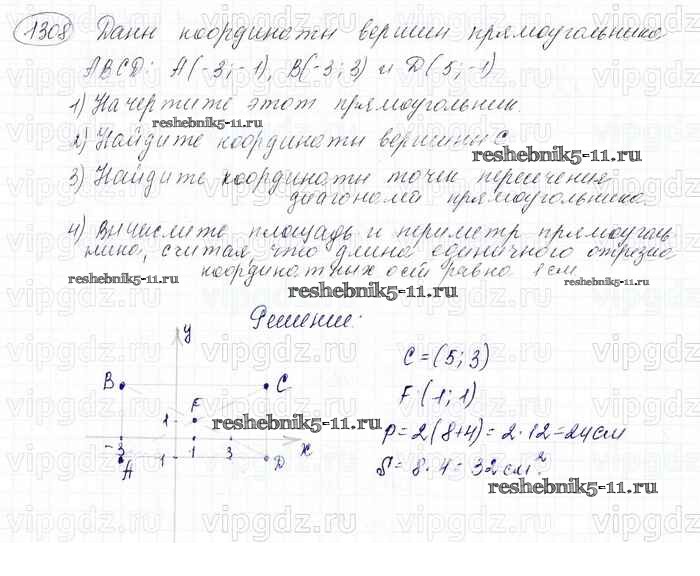 1308 Даны координаты вершин прямоугольника
ABCD: A(-3; -1), B(-3; 3) и D(5; -1)
1) Начертите этот прямоугольник.
2) Найдите координаты вершины C.
reshebnik5-11.ru
3) Найдите координаты точки пересечения
диагонали прямоугольника.
4) Вычислите площадь и периметр прямоуголь-
ника, считая, что длина единичного отрезка
координатных осей равна 1 см.
reshebnik5-11.ru
reshebnik5-11.ru
reshebnik5-11.ru
Решение:
y
B
C
F
1
-3
1
3
x
A
1
D
reshebnik5-11.ru
C = (5; 3)
F (1; 1)
P = 2(8+4) = 2·12 = 24 см
S = 8·4 = 32 см²
reshebnik5-11.ru
vipgdz.ru